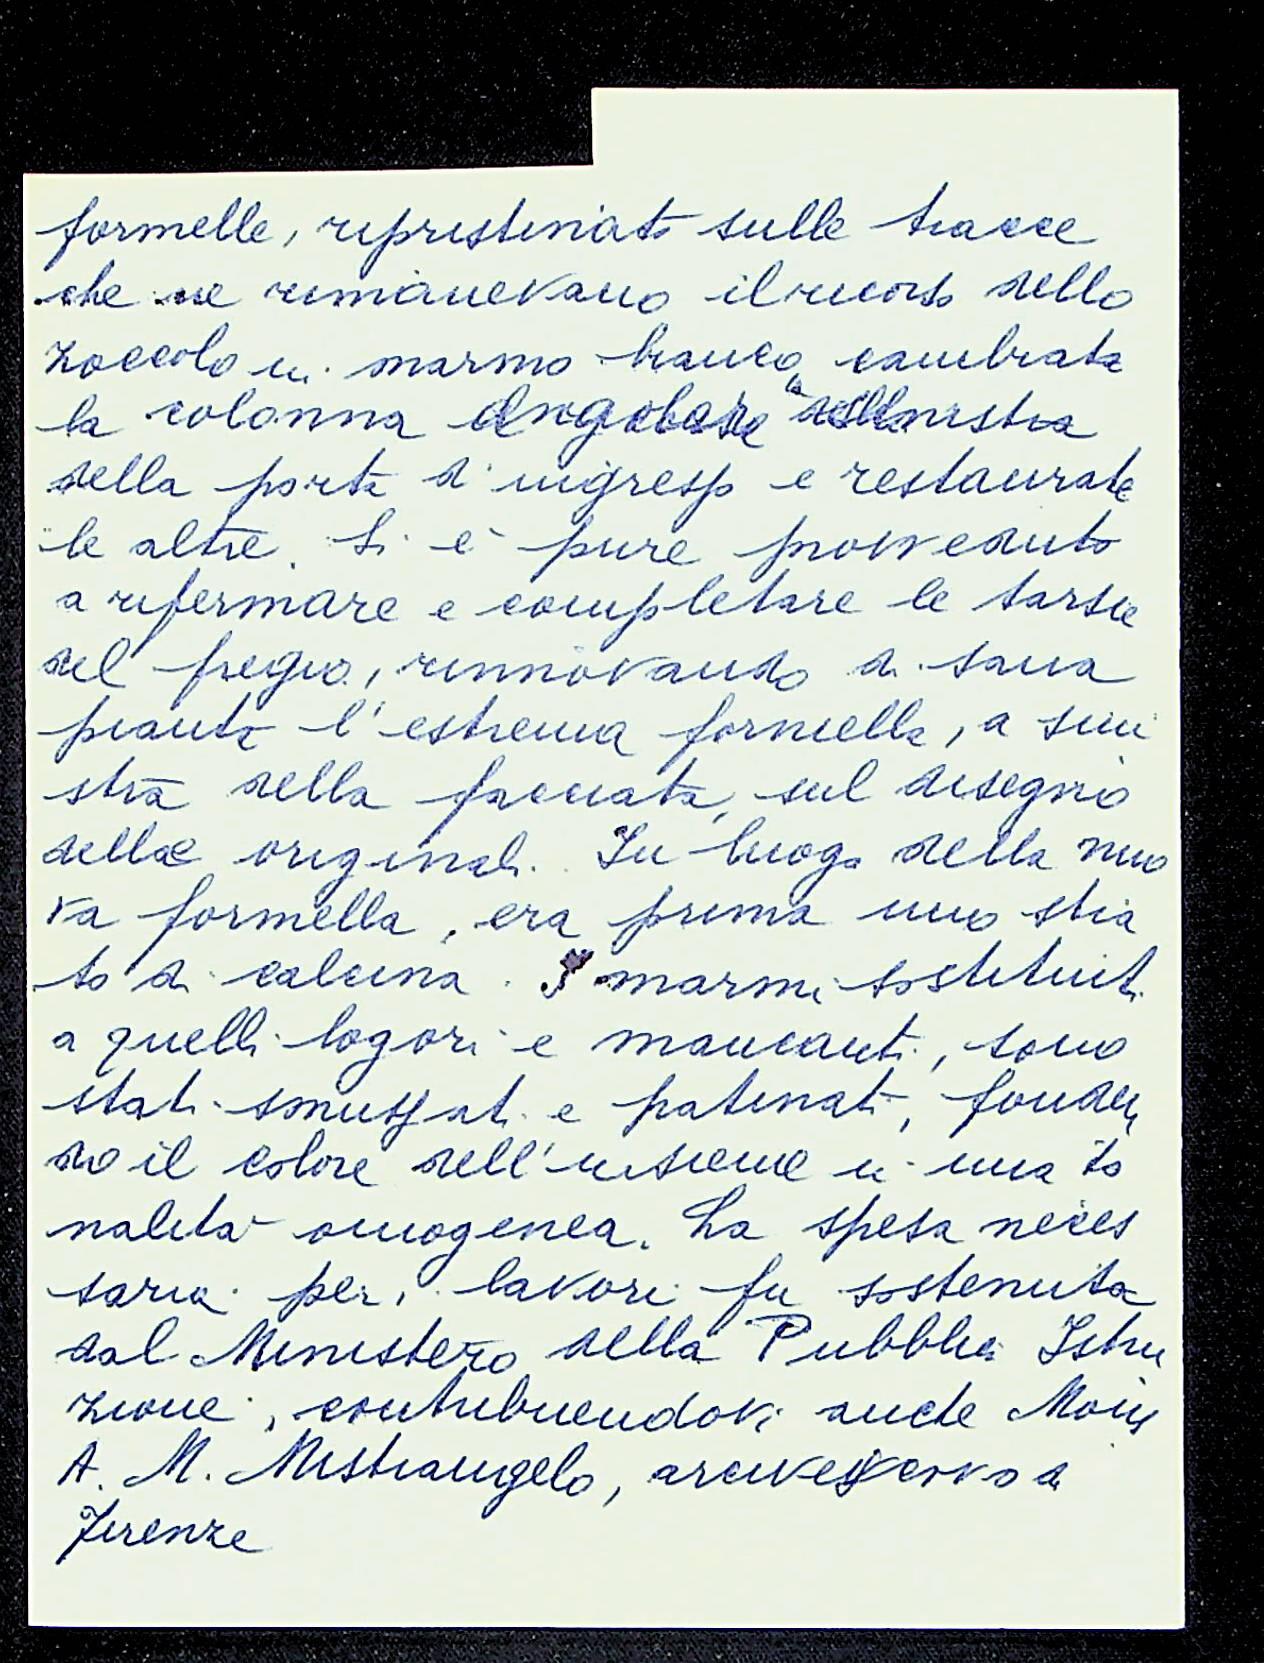 formelle, ripristinato sulle tracce
che ne rimanevano il ricorso dello
zoccolo in marmo bianco, cambiata
la colonna angolare a sinistra
della porta d'ingresso e restaurate
le altre. Si è pure provveduto
a rifermare e completare le tarsie
del fregio, rinnovando di sana
pianta l'estrema formella, a sini
stra della facciata, sul disegno
delle originali. In luogo della nuo
va formella, era prima uno stra
to di calcina. I marmi sostituiti
a quelli logori e mancanti, sono
stati smussati e patinati, fonden
do il colore dell'insieme in una to
nalità omogenea. La spesa neces
saria per i lavori fu sostenuta
dal Ministero della Pubblica Istru
zione, contribuendovi anche Mons
A. M. Mistrangelo, arcivescovo di
Firenze